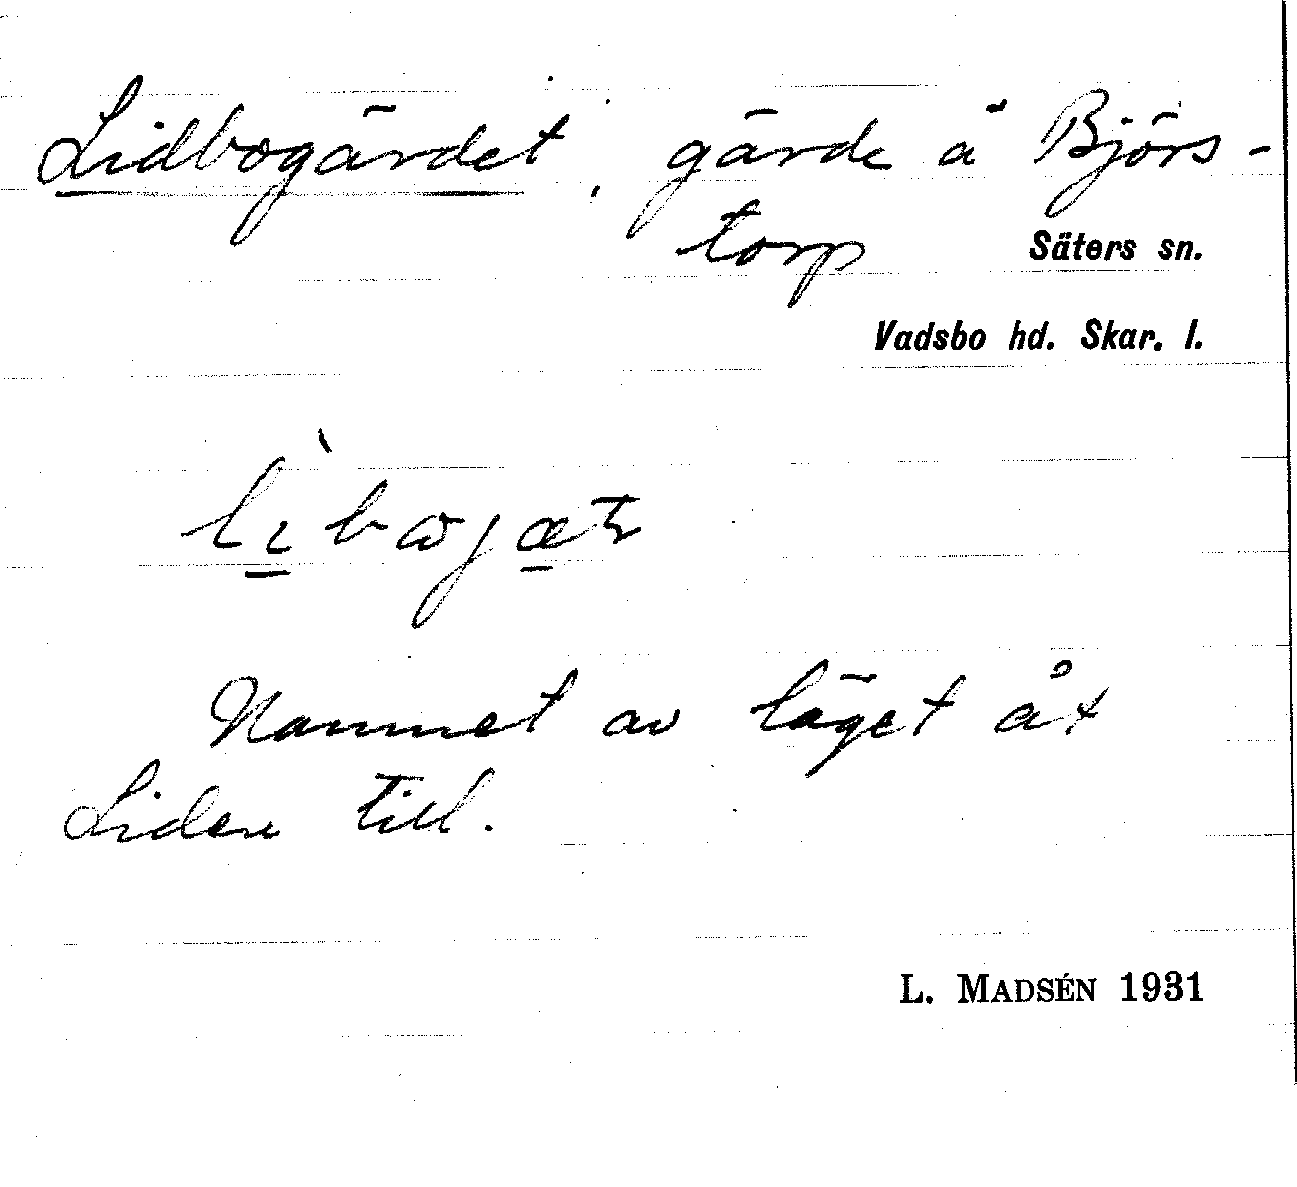 Lidbogärdet, gärde å Björs-
torp Säters sn.
Vadsbo hd. Skar. l.
Namnet av läget åt
Liden till.
L. MADSÉN 1931